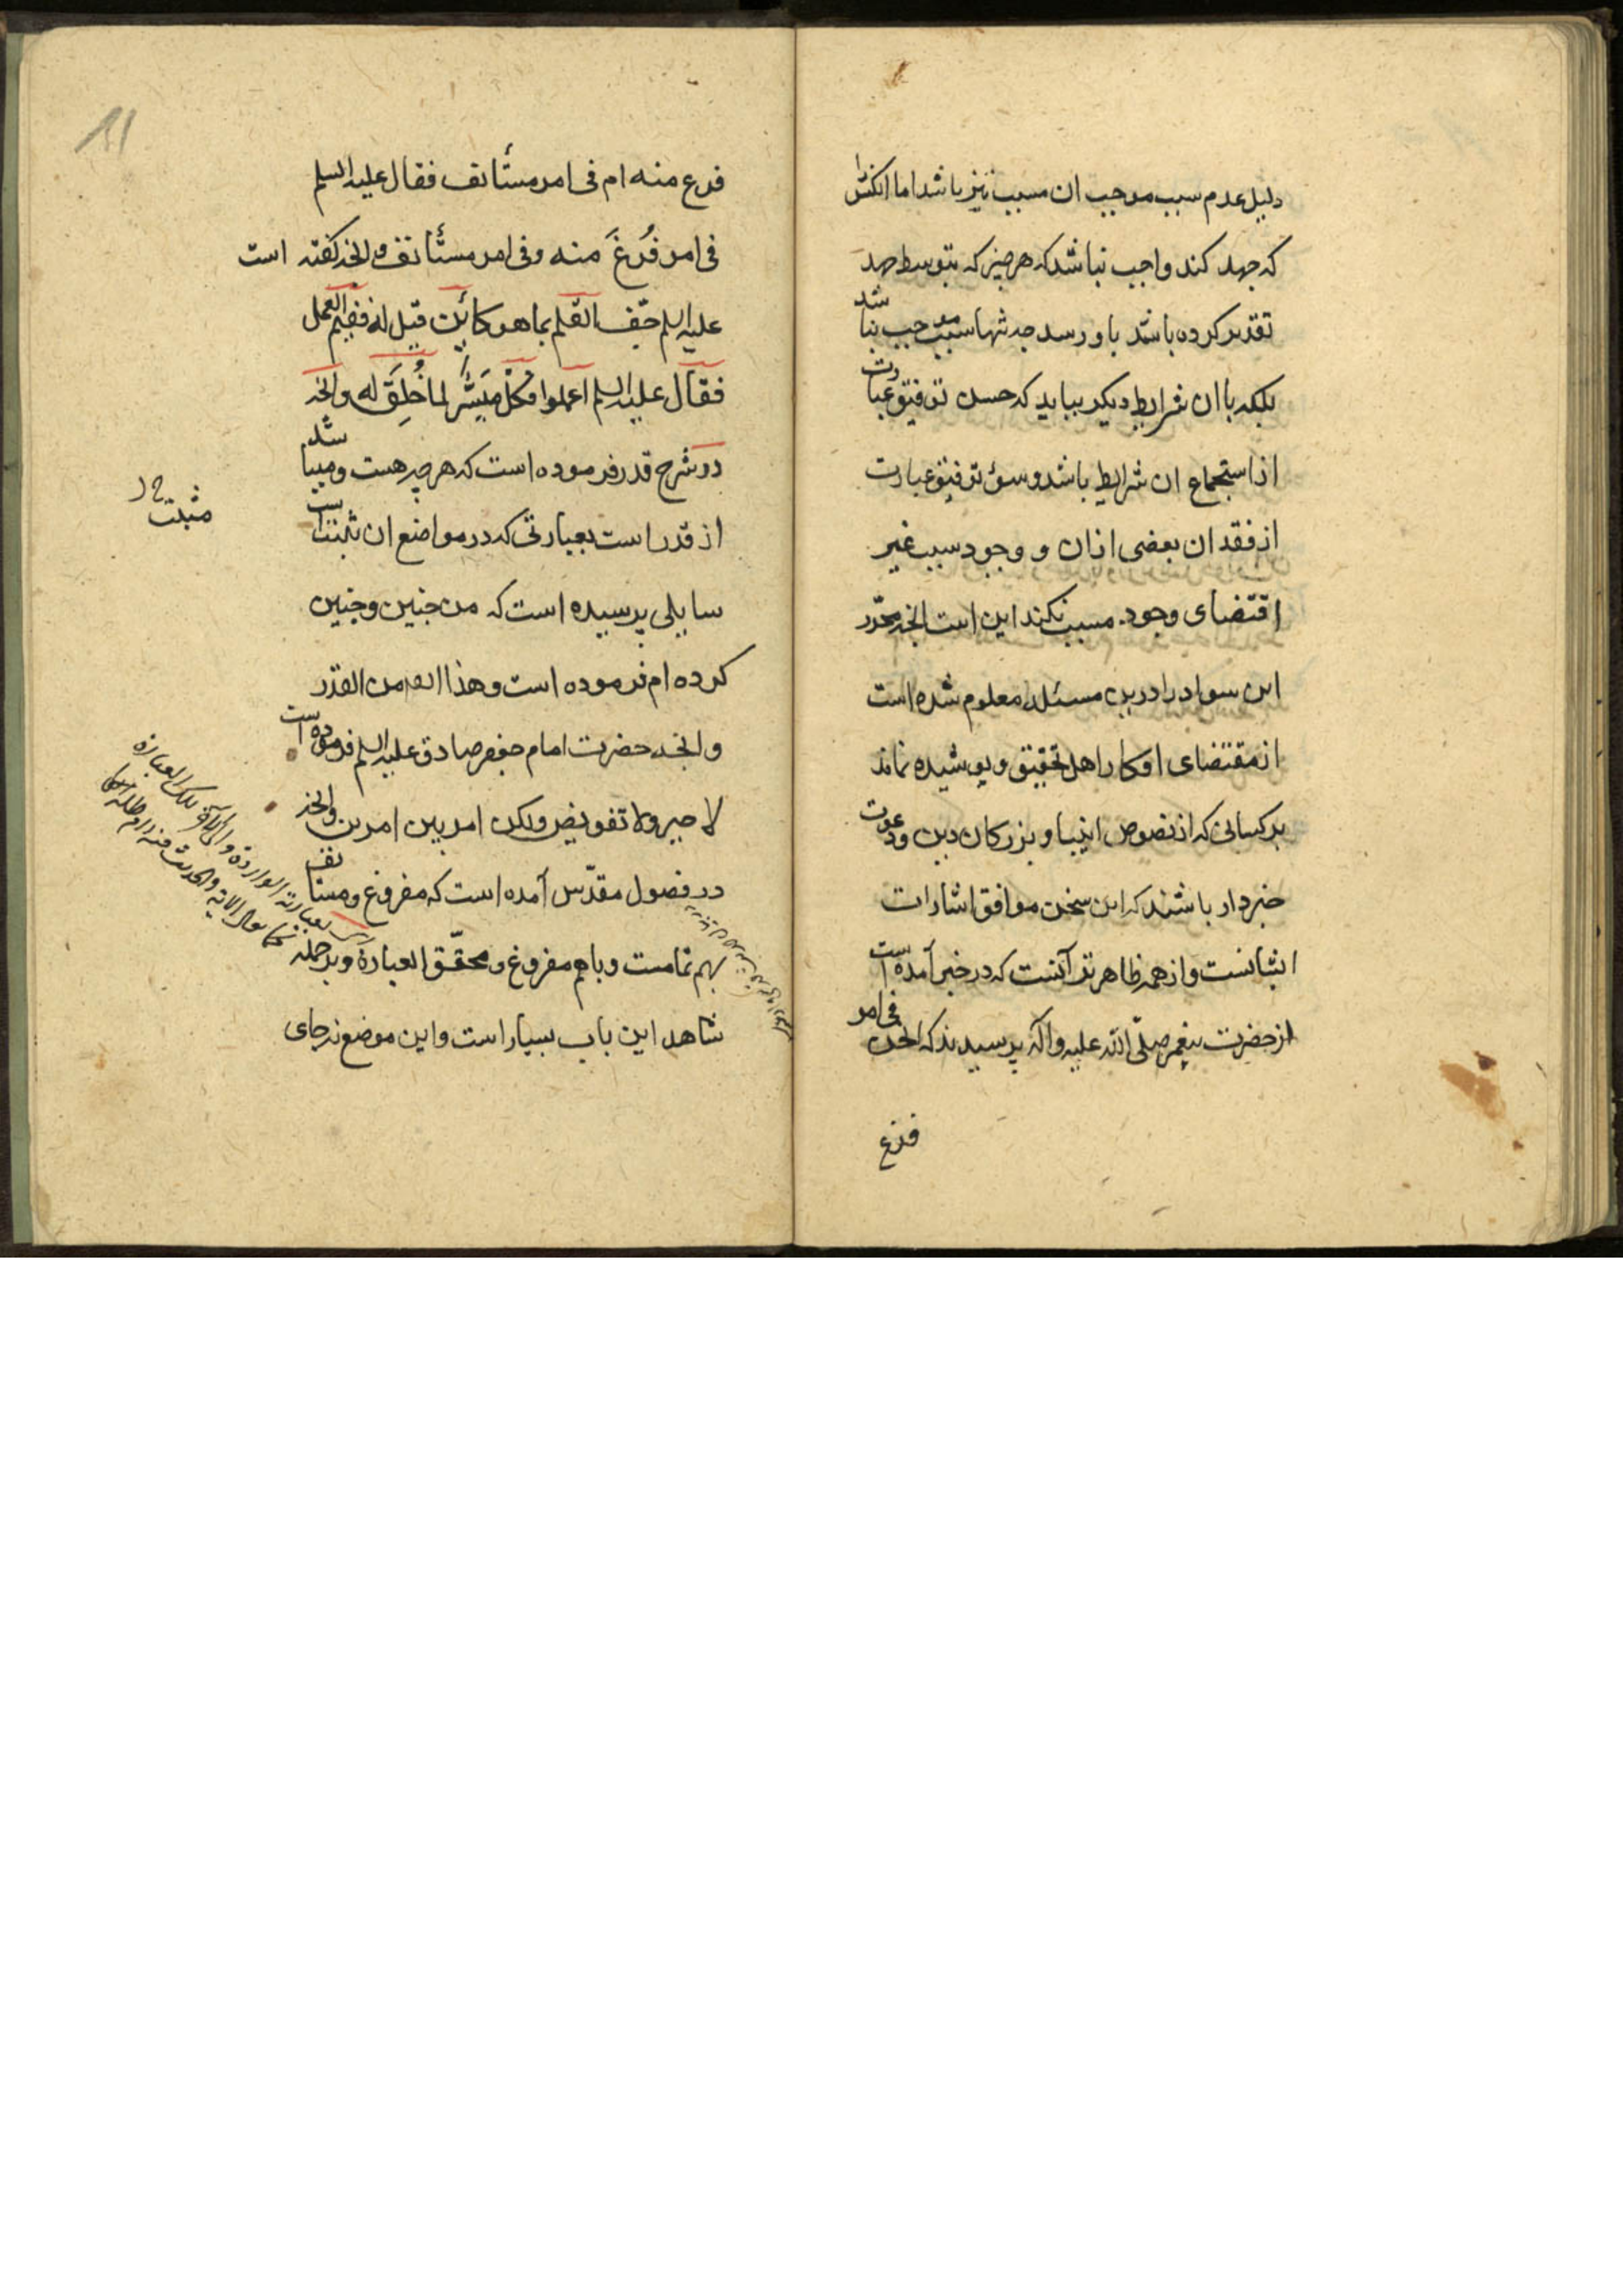 دلیل عدم سبب موجب ان مسبب نیز باشد اما انکس را
که جهد کند واجب نباشد که هر چیز که بتوسط جهد
تقدیر کرده باشد باو رسد چه تنها سبب موجب نباشد
بلکه با ان شرایط دیکر بباید که حسن توفیق عبارت
از استجماع ان شرایط باشد و سؤ توفیق عبارت
از فقدان بعضی ازان و وجود سبب غیر
اقتضای وجود مسبب نکند این است انچه محرّر
این سواد را درین مسئله معلوم شده است
از مقتضای افکار اهل تحقیق و پوشیده نماند
بر کسانی که از نصوص انبیا و بزرکان دین و دعوت
خبردار باشند که این سخن موافق اشارات
ایشانست و از همه ظاهرتر آنست که در خبر آمده است
از حضرت پیغمبر صلّی الله علیه وآله پرسیدند که انحن فی امر
فرغ
11
فرغ منه ام فی امر مستأنف فقال علیه السلم
فی امر فُرِغَ منه وفی امر مستأنف و انچه کفته است
علیه السلم جفّ القلم بما هو کائن قیل له ففیم العمل
فقال علیه السلم اعملوا فکلّ میسّر لما خُلِقَ له وانچه
در شرح قدر فرموده است که هر چه هست و میباشد
از قدر است بعبارتی که در مواضع ان ثبتست
مثبت
سایلی پرسیده است که من چنین و چنین
کرده ام فرموده است وهذا ایضا من القدر
وانچه حضرت امام جعفر صادق علیه السلم فرموده است
لا جبر ولا تفویض ولکن امر بین امرین وانچه
در فصول مقدّس آمده است که مفروغ و مستانف
بهم تمامست و باهم مفروغ و محقّق العبارة و بر جمله
شاهد این باب بسیار است و این موضع نه جای